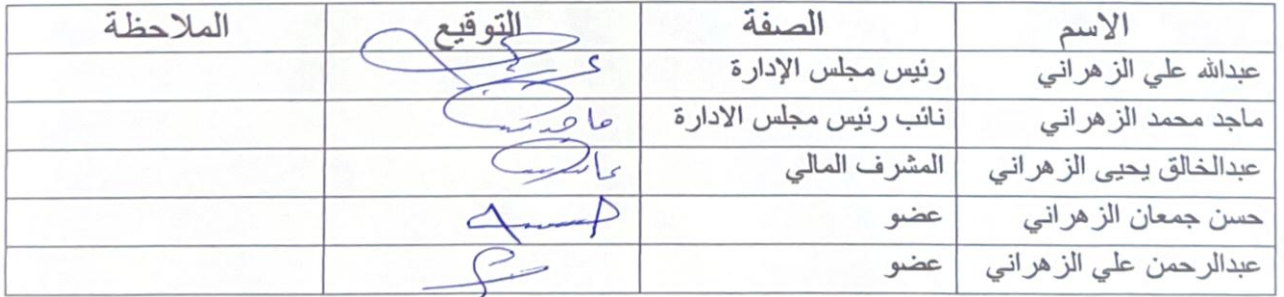 الاسم الصفة التوقيع الملاحظة
عبدالله علي الزهراني رئيس مجلس الإدارة
ماجد محمد الزهراني نائب رئيس مجلس الادارة ماجد
عبدالخالق يحيى الزهراني المشرف المالي
حسن جمعان الزهراني عضو
عبدالرحمن علي الزهراني عضو